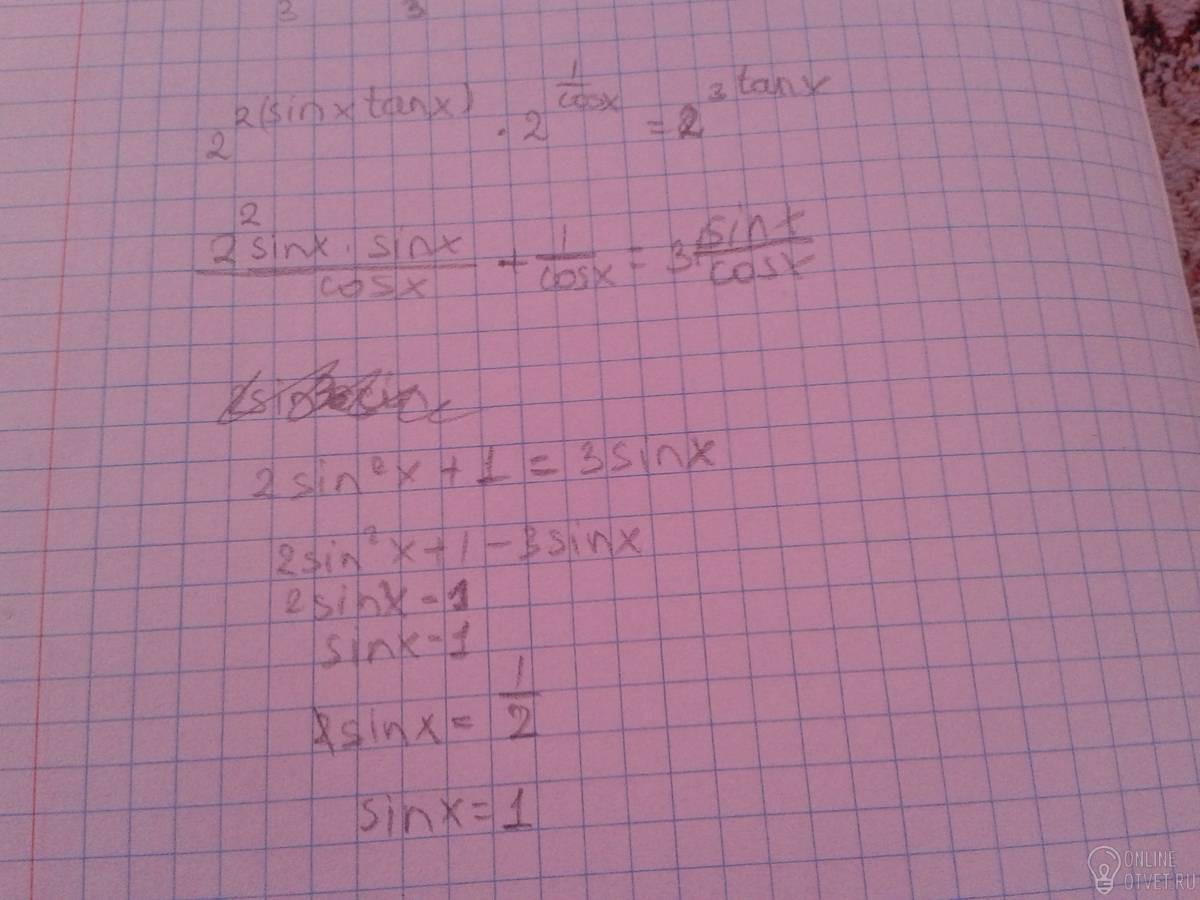 3 3
2^2(sinx tanx) · 2^1/cosx = 2^3 tanx
2^2 sinx · sinx/cosx + 1/cosx = 3 sinx/cosx
2 sin²x + 1 = 3 sinx
2sin²x + 1 - 3sinx
2sinx - 1
sinx - 1
sinx = 1/2
sinx = 1
ONLINE
OTVET.RU